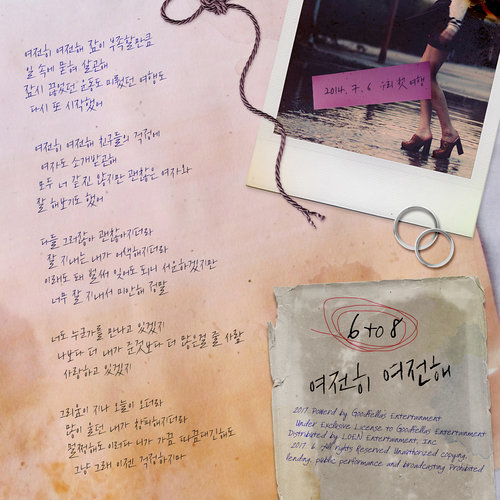 여전히 여전해 잠이 부족할만큼
일 속에 묻혀 잘관해
잠시 끊었던 운동도 미뤘던 여행도
다시 또 시작했어
여전히 여전해 친구들의 걱정에
여자도 소개받곤해
모두 너 같진 않지만 괜찮은 여자와
잘 해보기도 했어
다들 그러잖아 괜찮아지더라
잘 지내는 내가 어색해지더라
이래도 돼 벌써 잊어도 되니 서운하겠지만
너무 잘 지내서 미안해 정말
너도 누군가를 만나고 있겠지
나보다 더 내가 준것보다 더 많은걸 줄 사람
사랑하고 있겠지
그리움이 지나 오늘이 오더라
많이 울던 내가 창피해지더라
멀쩡해도 이러다 니가 가끔 따끔대긴해도
그냥 그래 이젠 걱정하지마
2014. 7. 6 우리 첫 여행
6 to 8
여전히 여전해
2017. Powerd by Goodfellas Entertainment
Under Exclusive License to Goodfellas Entertainment
Distributed by LOEN Entertainment, Inc.
2017. 6. All rights Reserved. Unauthorized copying,
lending, public performance and broadcasting Prohibited